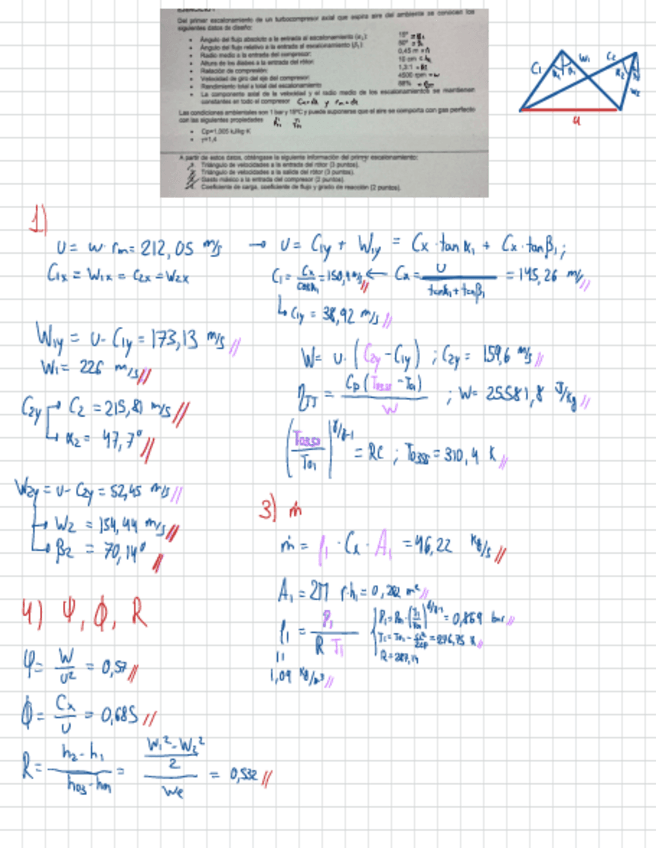 Del primer escalonamiento de un turbocompresor axial que aspira aire del ambiente se conocen los
siguientes datos de diseño:
• Ángulo del flujo absoluto a la entrada al escalonamiento (α₁): 15º
• Ángulo del flujo relativo a la entrada al escalonamiento (β₁): 50º
• Radio medio a la entrada del compresor: 0,45 m
• Altura de los álabes a la entrada del rótor: 10 cm
• Relación de compresión:
• Velocidad de giro del eje del compresor: 4500 rpm = w
• Rendimiento total a total del escalonamiento
• La componente axial de la velocidad y el radio medio de los escalonamientos se mantienen
constantes en todo el compresor
Las condiciones ambientales son 1 bar y 15ºC y puede suponerse que el aire se comporta con gas perfecto
con las siguientes propiedades
• Cp=1,005 kJ/kg·K
• γ=1,4
A partir de estos datos, obténgase la siguiente información del primer escalonamiento:
Triángulo de velocidades a la entrada del rótor (3 puntos).
Triángulo de velocidades a la salida del rótor (3 puntos).
Gasto másico a la entrada del compresor (2 puntos).
Coeficiente de carga, coeficiente de flujo y grado de reacción (2 puntos).
C₁ W₁ C₂ W₂
u
1)
U = w · rm = 212,05 m/s → U = C1y + W1y = Cx · tan α₁ + Cx · tan β₁ ;
C1x = W1x = C2x = W2x
C₁ = Cx/cos α₁ = 150,4 m/s ← Cx = U/(tan α₁ + tan β₁) = 145,26 m/s
↳ C1y = 38,92 m/s
W1y = U - C1y = 173,13 m/s
W₁ = 226 m/s
W = U · (C2y - C1y) ; C2y = 159,6 m/s
ηTT = Cp (T03ss - T01)/W ; W = 25581,8 J/kg
C2y → C₂ = 215,81 m/s
↳ α₂ = 47,7°
(T03ss/T01)^γ/γ-1 = RC ; T03ss = 310,4 K
W2y = U - C2y = 52,45 m/s
→ W₂ = 154,44 m/s
↳ β₂ = 70,14°
3) ṁ
ṁ = ρ₁ · Cx · A₁ = 46,22 kg/s
A₁ = 2π r·h₁ = 0,282 m²
ρ₁ = P₁/(R T₁)
= 0,869 bar
= 276,75 K
1,09 kg/m³
4) Ψ, Φ, R
Ψ = W/U² = 0,57
Φ = Cx/U = 0,685
R = (h₂ - h₁)/(h03 - h01) = ((W₁² - W₂²)/2)/We = 0,532